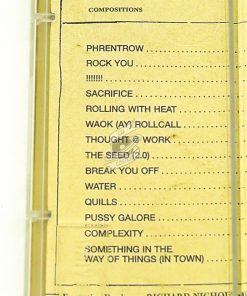 COMPOSITIONS
PHRENTROW
ROCK YOU
!!!!!!!
SACRIFICE
ROLLING WITH HEAT
WAOK (AY) ROLLCALL
THOUGHT @ WORK
THE SEED (2.0)
BREAK YOU OFF
WATER
QUILLS
PUSSY GALORE
COMPLEXITY
SOMETHING IN THE
WAY OF THINGS (IN TOWN)